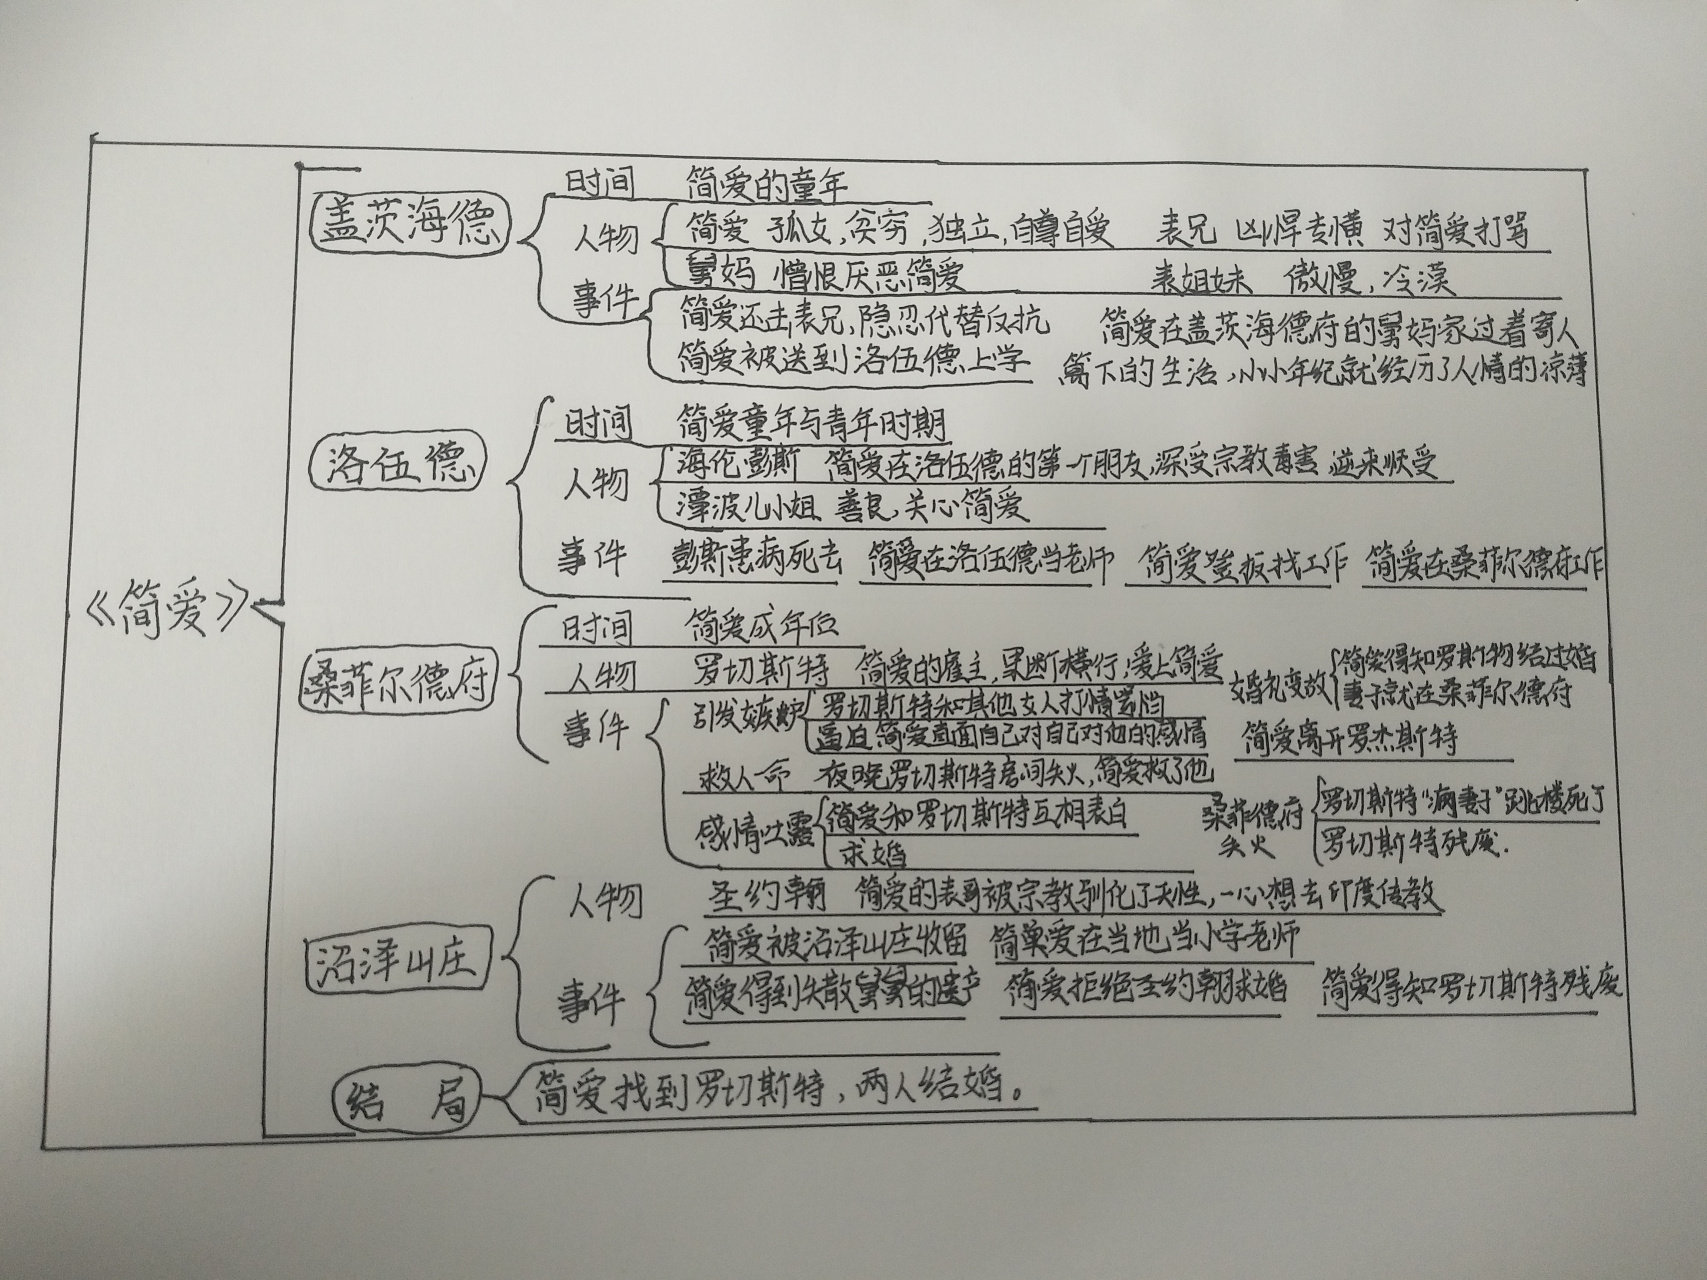 《简爱》
盖茨海德
时间 简爱的童年
人物
简爱 孤女,贫穷,独立,自尊自爱 表兄 凶悍专横 对简爱打骂
舅妈 憎恨厌恶简爱 表姐妹 傲慢,冷漠
事件
简爱还击表兄,隐忍代替反抗
简爱被送到洛伍德上学
简爱在盖茨海德府的舅妈家过着寄人
篱下的生活,小小年纪就经历了人情的凉薄
洛伍德
时间 简爱童年与青年时期
人物
海伦彭斯 简爱在洛伍德的第一个朋友,深受宗教毒害 逆来顺受
潭波儿小姐 善良,关心简爱
事件 彭斯患病死去 简爱在洛伍德当老师 简爱登报找工作 简爱在桑菲尔德府工作
桑菲尔德府
时间 简爱成年后
人物 罗切斯特 简爱的雇主,果断横行,爱上简爱
事件
引发嫉妒
罗切斯特和其他女人打情骂俏
逼迫简爱直面自己对自己对他的感情
救人一命 夜晚罗切斯特房间失火,简爱救了他
感情吐露
简爱和罗切斯特互相表白
求婚
婚礼变故
简爱得知罗斯特结过婚
妻子就在桑菲尔德府
简爱离开罗杰斯特
桑菲德府
失火
罗切斯特“病妻子”跳楼死了
罗切斯特残废.
沼泽山庄
人物 圣约翰 简爱的表哥被宗教驯化了天性,一心想去印度传教
事件
简爱被沼泽山庄收留 简单爱在当地当小学老师
简爱得到失散舅舅的遗产 简爱拒绝圣约翰求婚 简爱得知罗切斯特残废
结局
简爱找到罗切斯特,两人结婚。